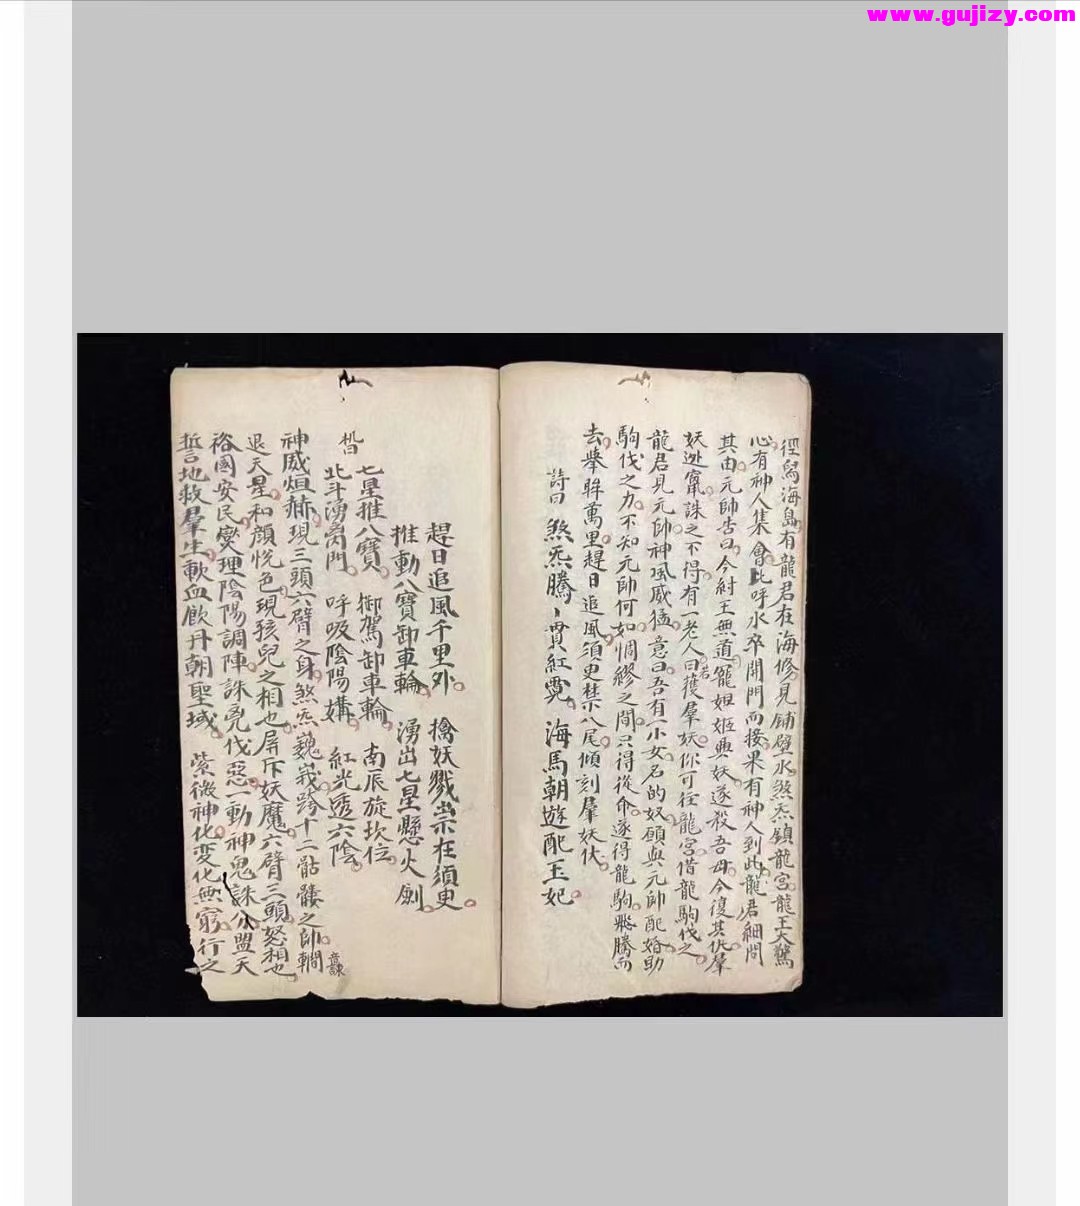 www.gujizy.com
徑為海島有龍君在海修見鋪壁水煞炁鎮龍宮龍王大驚
心有神人集會此呼水卒開門而接果有神人到此龍君細問
其由元帥告曰今紂王無道寵妲姬興妖遂殺吾母今復其仇羣
妖逃竄誅之不得有一老人曰若獲羣妖你可徃龍宮借龍駒伐之
龍君見元帥神風威猛意曰吾有一小女名的奴願與元帥配婚助
駒伐之力不知元帥何如惆繆之間只得從命遂得龍駒飛騰而
去舉眸萬里趕日追風須臾禁八尾傾刻羣妖伏
詩曰 煞炁騰丶貫紅霓 海馬朝遊配玉妃
趕日追風千里外 擒妖戮祟在須臾
推動八寶卸車輪 湧出七星懸火劍
七星推八寶 御駕卸車輪 南辰旋坎位
北斗湧离門 呼吸陰陽媾 紅光透六陰
神威烜赫現三頭六臂之身煞炁巍峩跨十二骷髏之帥
退天星和顔悅色現孩兒之相也屏斥妖魔六臂三頭怒相也
裕國安民燮理陰陽調陣誅兇伐惡一動神鬼誅分盟天
誓地救羣生歃血飲丹朝聖域 紫微神化変化無窮行之